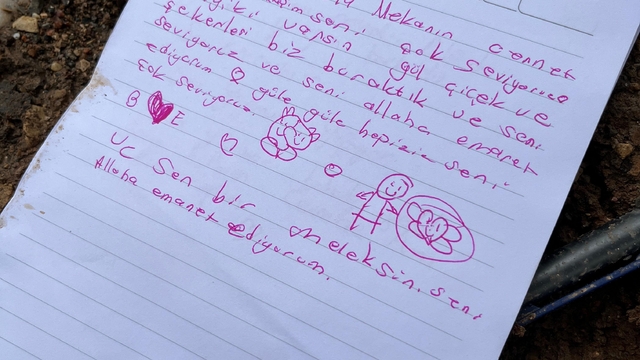 Mekanın cennet
seni çok seviyoruz
iyiki varsın gül çiçek ve
şekerleri biz bıraktık ve seni
seviyoruz ve seni allaha emanet
ediyorum güle güle hepizin seni
çok seviyoruz.
B E
UC Sen bir meleksin. seni
Allaha emanet ediyorum.